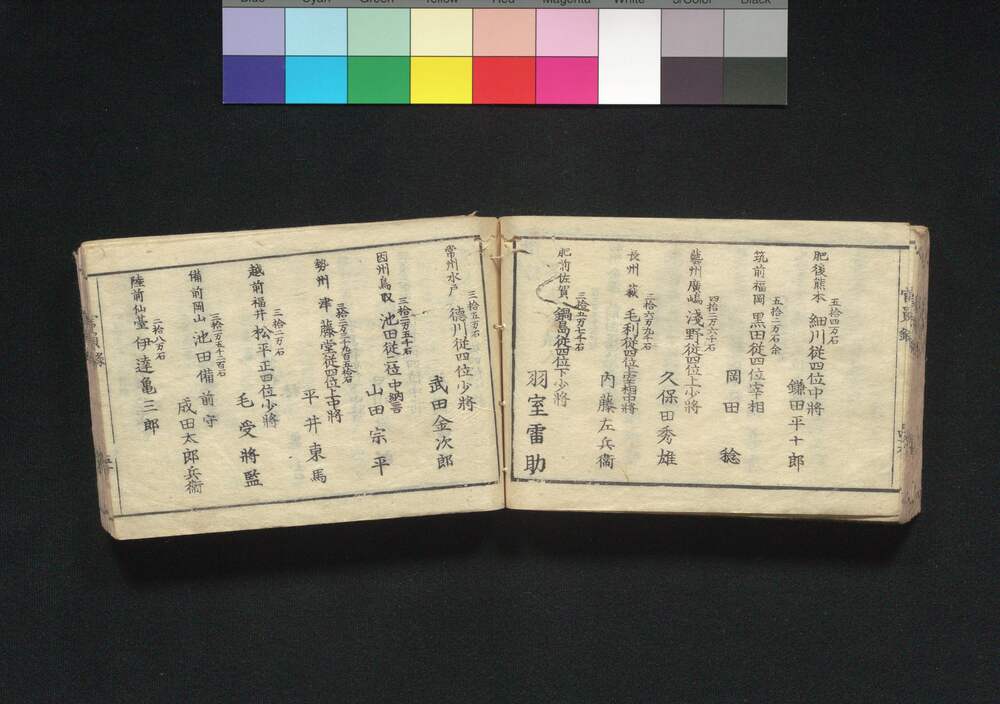 Blue Cyan Green Yellow Red Magenta White 3/Color Black
五拾四万石
肥後熊本 細川従四位中将
鎌田平十郎
五拾二万石余
筑前福岡 黒田従四位宰相
岡田 稔
四拾二万六千石
藝州廣嶋 淺野従四位上少將
久保田秀雄
三拾六万九千石
長州 萩 毛利従四位宰相中将
内藤左兵衞
三拾五万七千石
肥前佐賀 鍋島従四位下少将
羽室雷助
三拾五万石
常州水戸 德川従四位少將
武田金次郎
三拾二万五千石
因州鳥取 池田従二位中納言
山田宗平
三拾二万三千九百五拾石
勢州 津 藤堂従四位上中將
平井東馬
三拾二万石
越前福井 松平正四位少將
毛受將監
三拾一万五千二百石
備前岡山 池田備前守
成田太郎兵衞
二拾八万石
陸前仙臺 伊達亀三郎